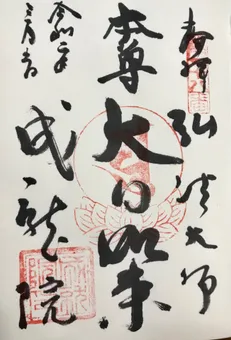 奉拝
弘法大師
本尊
大日如来
令和二年
三月吉日
成就院